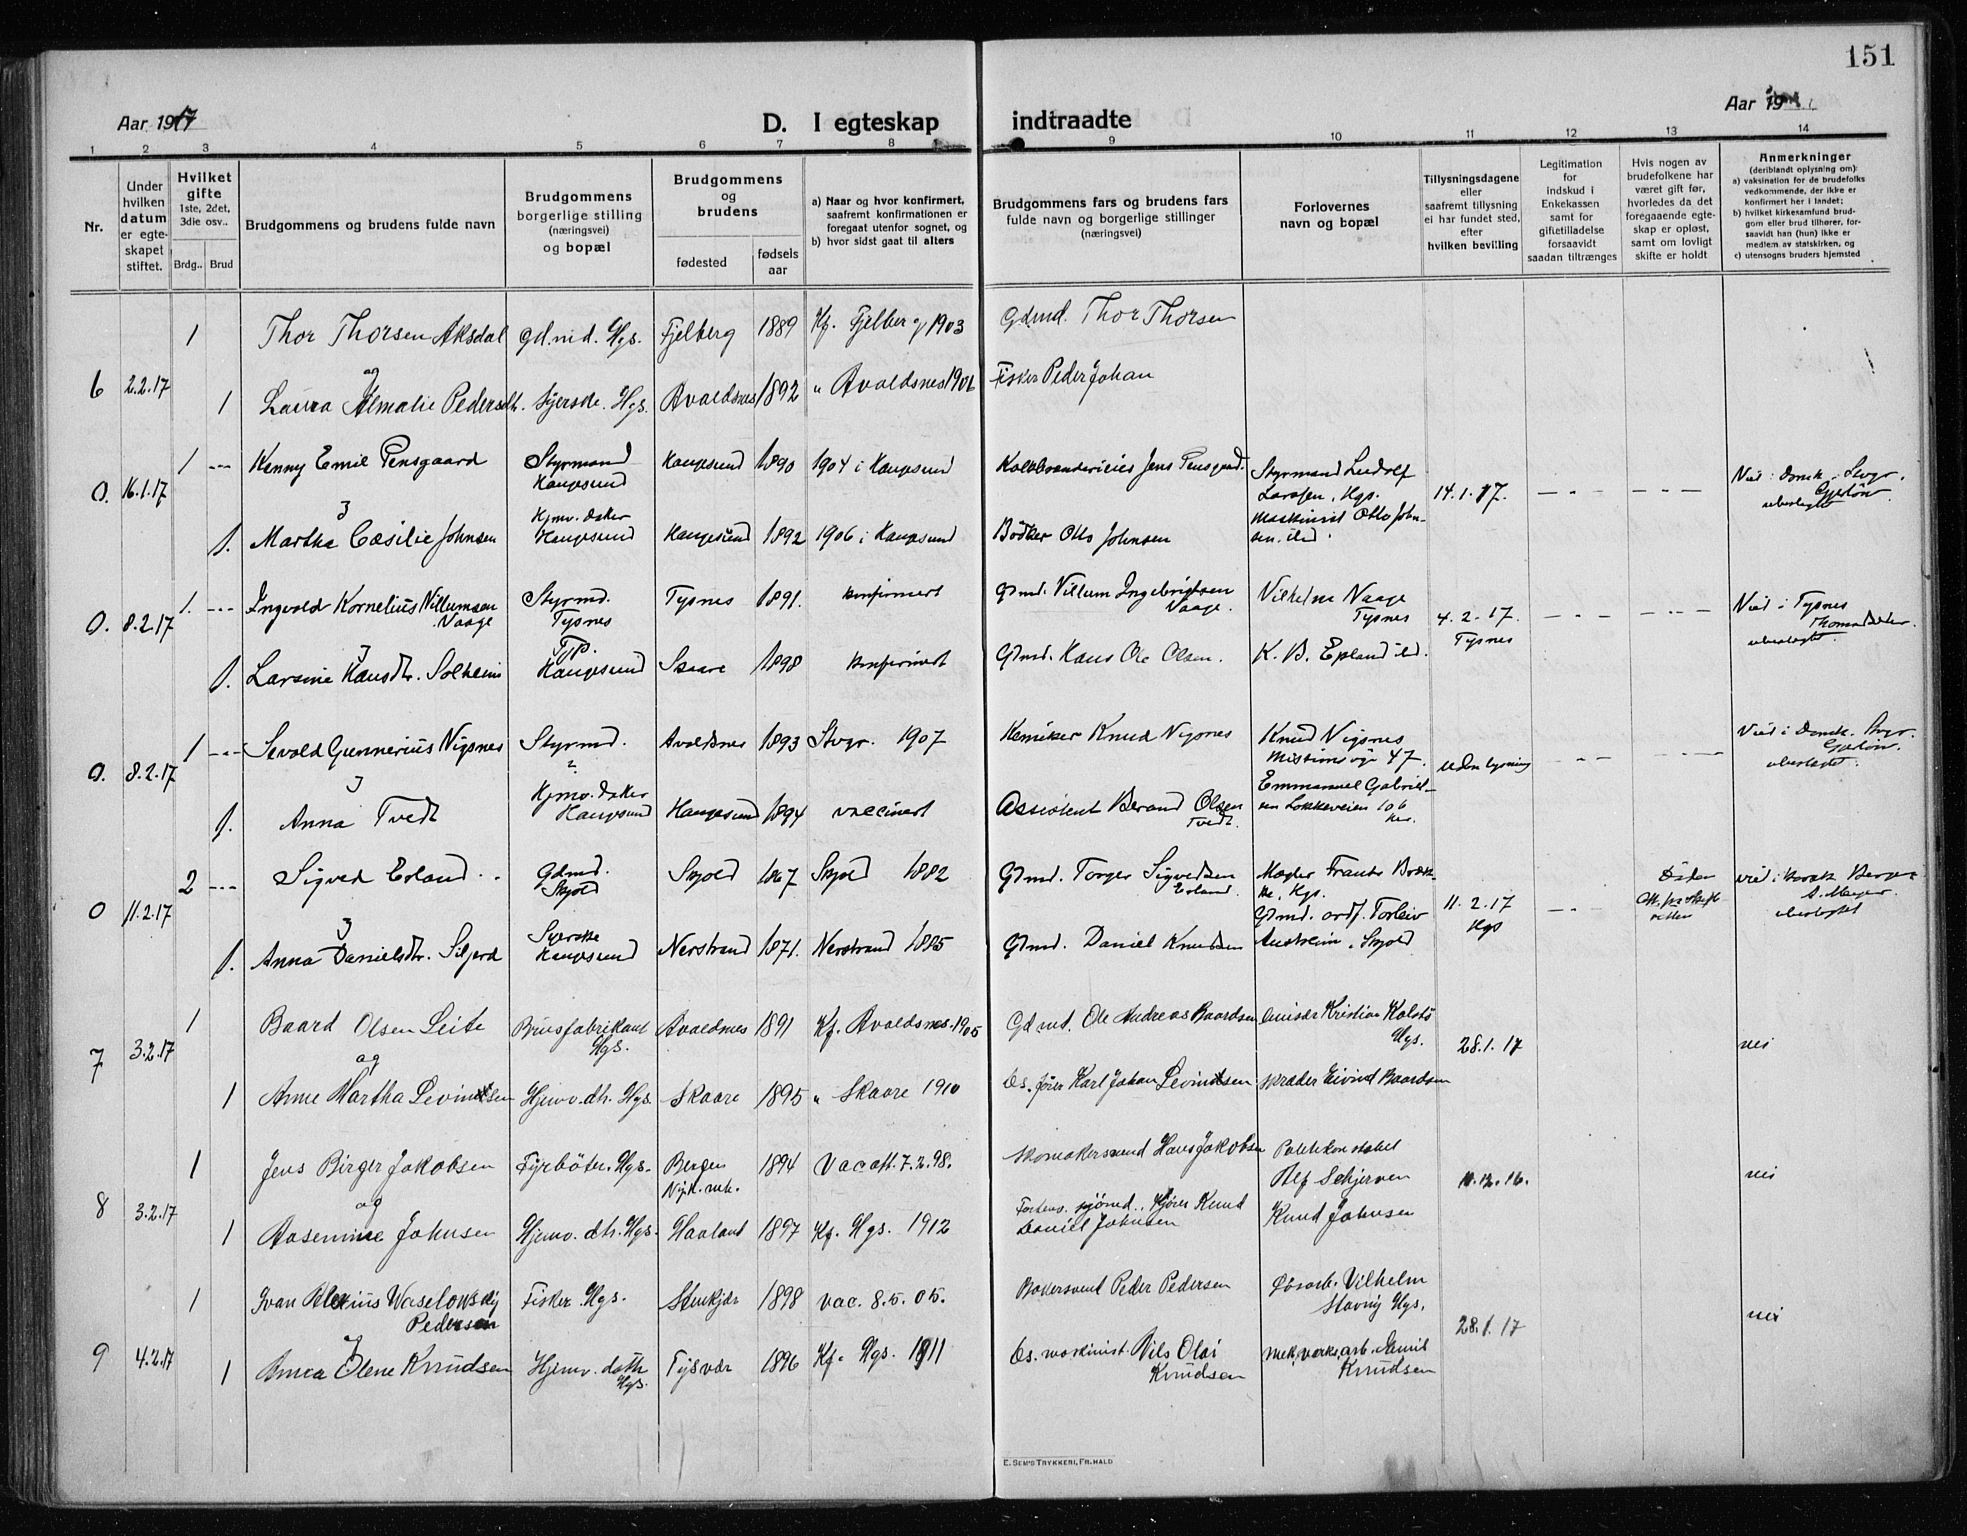 151
Aar 1917
D. I egteskap indtraadte
Aar 19
1 2 3 4 5 6 7 8 9 10 11 12 13 14
Nr.
Under hvilken datum er egteskapet stiftet.
Hvilket gifte 1ste, 2det, 3die osv..
Brdg.. Brud
Brudgommens og brudens fulde navn
Brudgommens borgerlige stilling (næringsvei) og bopæl
Brudgommens og brudens
fødested
fødsels aar
a) Naar og hvor konfirmert, saafremt konfirmationen er foregaat utenfor sognet, og
b) hvor sidst gaat til alters
Brudgommens fars og brudens fars fulde navn og borgerlige stillinger (næringsvei)
Forlovernes navn og bopæl
Tillysningsdagene eller saafremt tillysning ei har fundet sted, efter hvilken bevilling
Legitimation for indskud i Enkekassen samt for giftetilladelse forsaavidt saadan tiltrænges
Hvis nogen av brudefolkene har været gift før, hvorledes da det foregaaende egteskap er opløst, samt om lovligt skifte er holdt
Anmerkninger (deriblandt oplysning om):
a) vaksination for de brudefolks vedkommende, der ikke er konfirmert her i landet;
b) hvilket kirkesamfund brudgom eller brud tilhører, forsaavidt han (hun) ikke er medlem av statskirken, og
c) utensogns bruders hjemsted
1 Thor Thorsen Aksdal Gd.md. Hgs. Fjelberg 1889 Kf. Fjelberg 1903 Gdmd. Thor Thorsen
6 2.2.17 og
1 Laura Almalie Pedersdtr. Syerske. Hgs. Avaldsnes 1892 " Avaldsnes 1906 Fisker Peder Johan
1 --- Kenny Emil Pensgaard Styrmand Haugesund Haugesund 1890 1904 i Haugesund Jens Pensgaard. Styrmand Ludolf Larssen, Hgs.
0. 16.1.17 14.1.17.
1. Martha Cæsilie Johnsen Hjmv. datter Haugesund Haugesund 1892 1906 i Haugesund Bødker Otto Johnsen Maskinist Otto Johnsen. ibd.
1. --- Ingvald Kornelius Villumsen Vaage Styrmd. Tysnes Tysnes 1891. konfirmert Gdmd. Villum Ingebrigtsen Vaage. Vilhelm Vaage Tysnes
0. 8.2.17 4.2.17. Tysnes Viet i Tysnes
1. Larsine Hansdtr. Solheim Haugesund Skaare 1898 konfirmert Gdmd. Hans Ole Olsen. K. B. Epland ibd.
1 --- Sevald Gunnerius Vigsnes Styrmd. Avaldsnes 1893 Stvgr. 1907 Kemiker Knud Vigsnes Knud Vigsnes Missionsvei 47.
0. 8.2.17 uden lysning
1. Anna Tvedt Hjmv. datter Haugesund Haugesund 1894 vaccinert Assistent Berand Olsen Tvedt. Emmanuel Gabrielsen Lokkeveien 106 her.
2 --- Sigved Erland Gdmd. Skjold Skjold 1867 Skjold 1882 Gdmd. Torger Sigvedsen Erland. Mægler Frantz Brække, Hgs.
0 11.2.17 11.2.17 Hgs
1. Anna Danielsdtr. Siljord Syerske Haugesund Nerstrand 1871. Nerstrand 1885 Gdmd. Daniel Knudsen Gdmd. ordf. Torleiv Austreim, Skjold
1 Baard Olsen Leite Brusfabrikant Hgs. Avaldsnes 1891 Kf. Avaldsnes. 1905 Gdmd. Ole Andreas Baardsen Kristian Kolstø Hgs.
7 3.2.17 og 28.1.17 nei
1 Anne Martha Levindsen Hjemv. dtr. Hgs. Skaare 1895 " Skaare 1910 Gs. fører Karl Johan Levindsen Skræder Eivind Baardsen
1 Jens Birger Jakobsen Fyrbøter. Hgs. Bergen Nyk. mk. 1894 Vacatt. 7.2.98. Skomakersvend Hans Jakobsen Politikonstabel Alf Schjerven
8 3.2.17 og 11.12.16. nei
1 Aasemine Johnsen Hjemv. dtr. Hgs. Haaland 1897 Kf. Hgs. 1912 Knud Daniel Johnsen Knud Johnsen
1 Ivan Alexius Waselowskij Pedersen Fisker Hgs. Stenkjær 1898 vac. 8.5.05. Bakersvend Peder Pedersen Løsarb. Vilhelm Stavnij Hgs.
9 4.2.17 28.1.17 nei
1 Anna Olene Knudsen Hjemv. datter Hgs. Tysvær 1896 Kf. Hgs. 1911 Gs. maskinist. Nils Olai Knudsen Mek. verks. arb. Knudsen
E. SEM'S TRYKKERI, FR.HALD